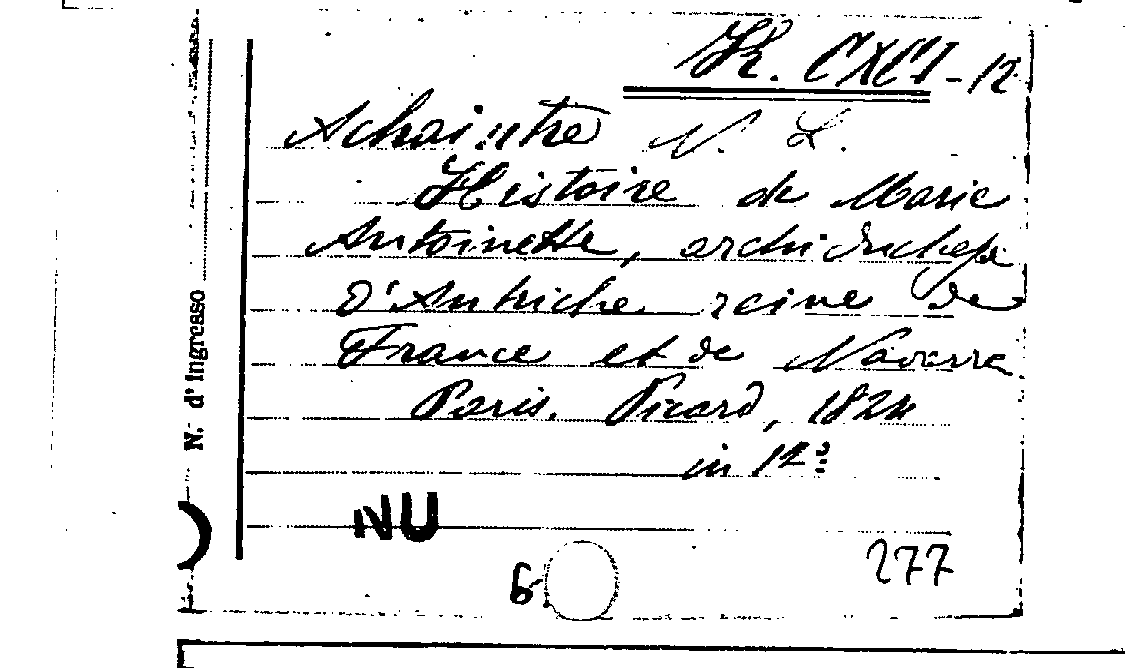 K. CXCI-12
Achaintre N. L.
Histoire de Marie
Antoinette, archiduchesse
d'Autriche reine de
France et de Navarre
Paris. Picard, 1824
in 12º
NU
6
277
N. d'Ingresso